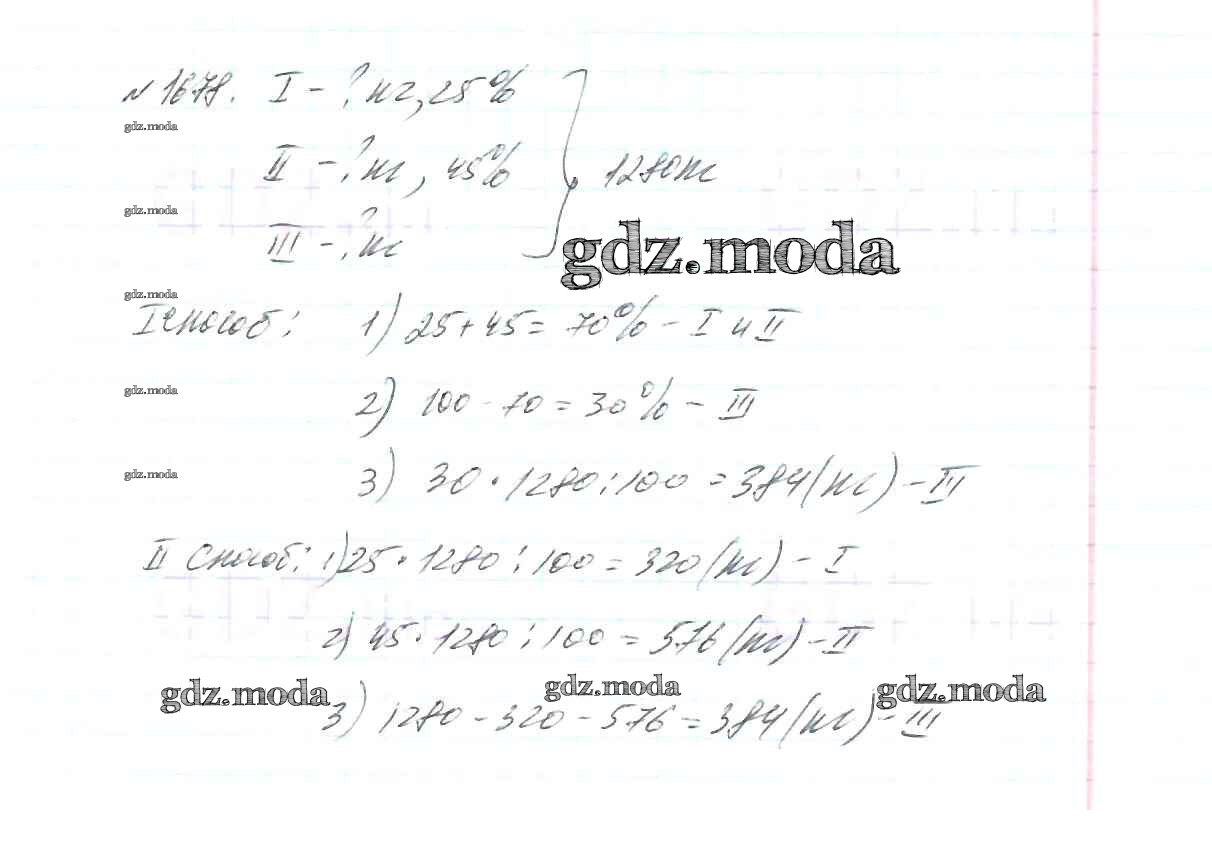 № 1678. I - ? кг, 25%
gdz.moda
II - ? кг, 45% } 1280 кг
gdz.moda
III - ? кг
gdz.moda
gdz.moda
I способ: 1) 25+45=70% - I и II
gdz.moda
2) 100-70=30% - III
gdz.moda
3) 30·1280:100=384(кг) - III
II способ: 1) 25·1280:100=320(кг) - I
2) 45·1280:100=576(кг) - II
gdz.moda gdz.moda gdz.moda
3) 1280-320-576=384(кг) - III